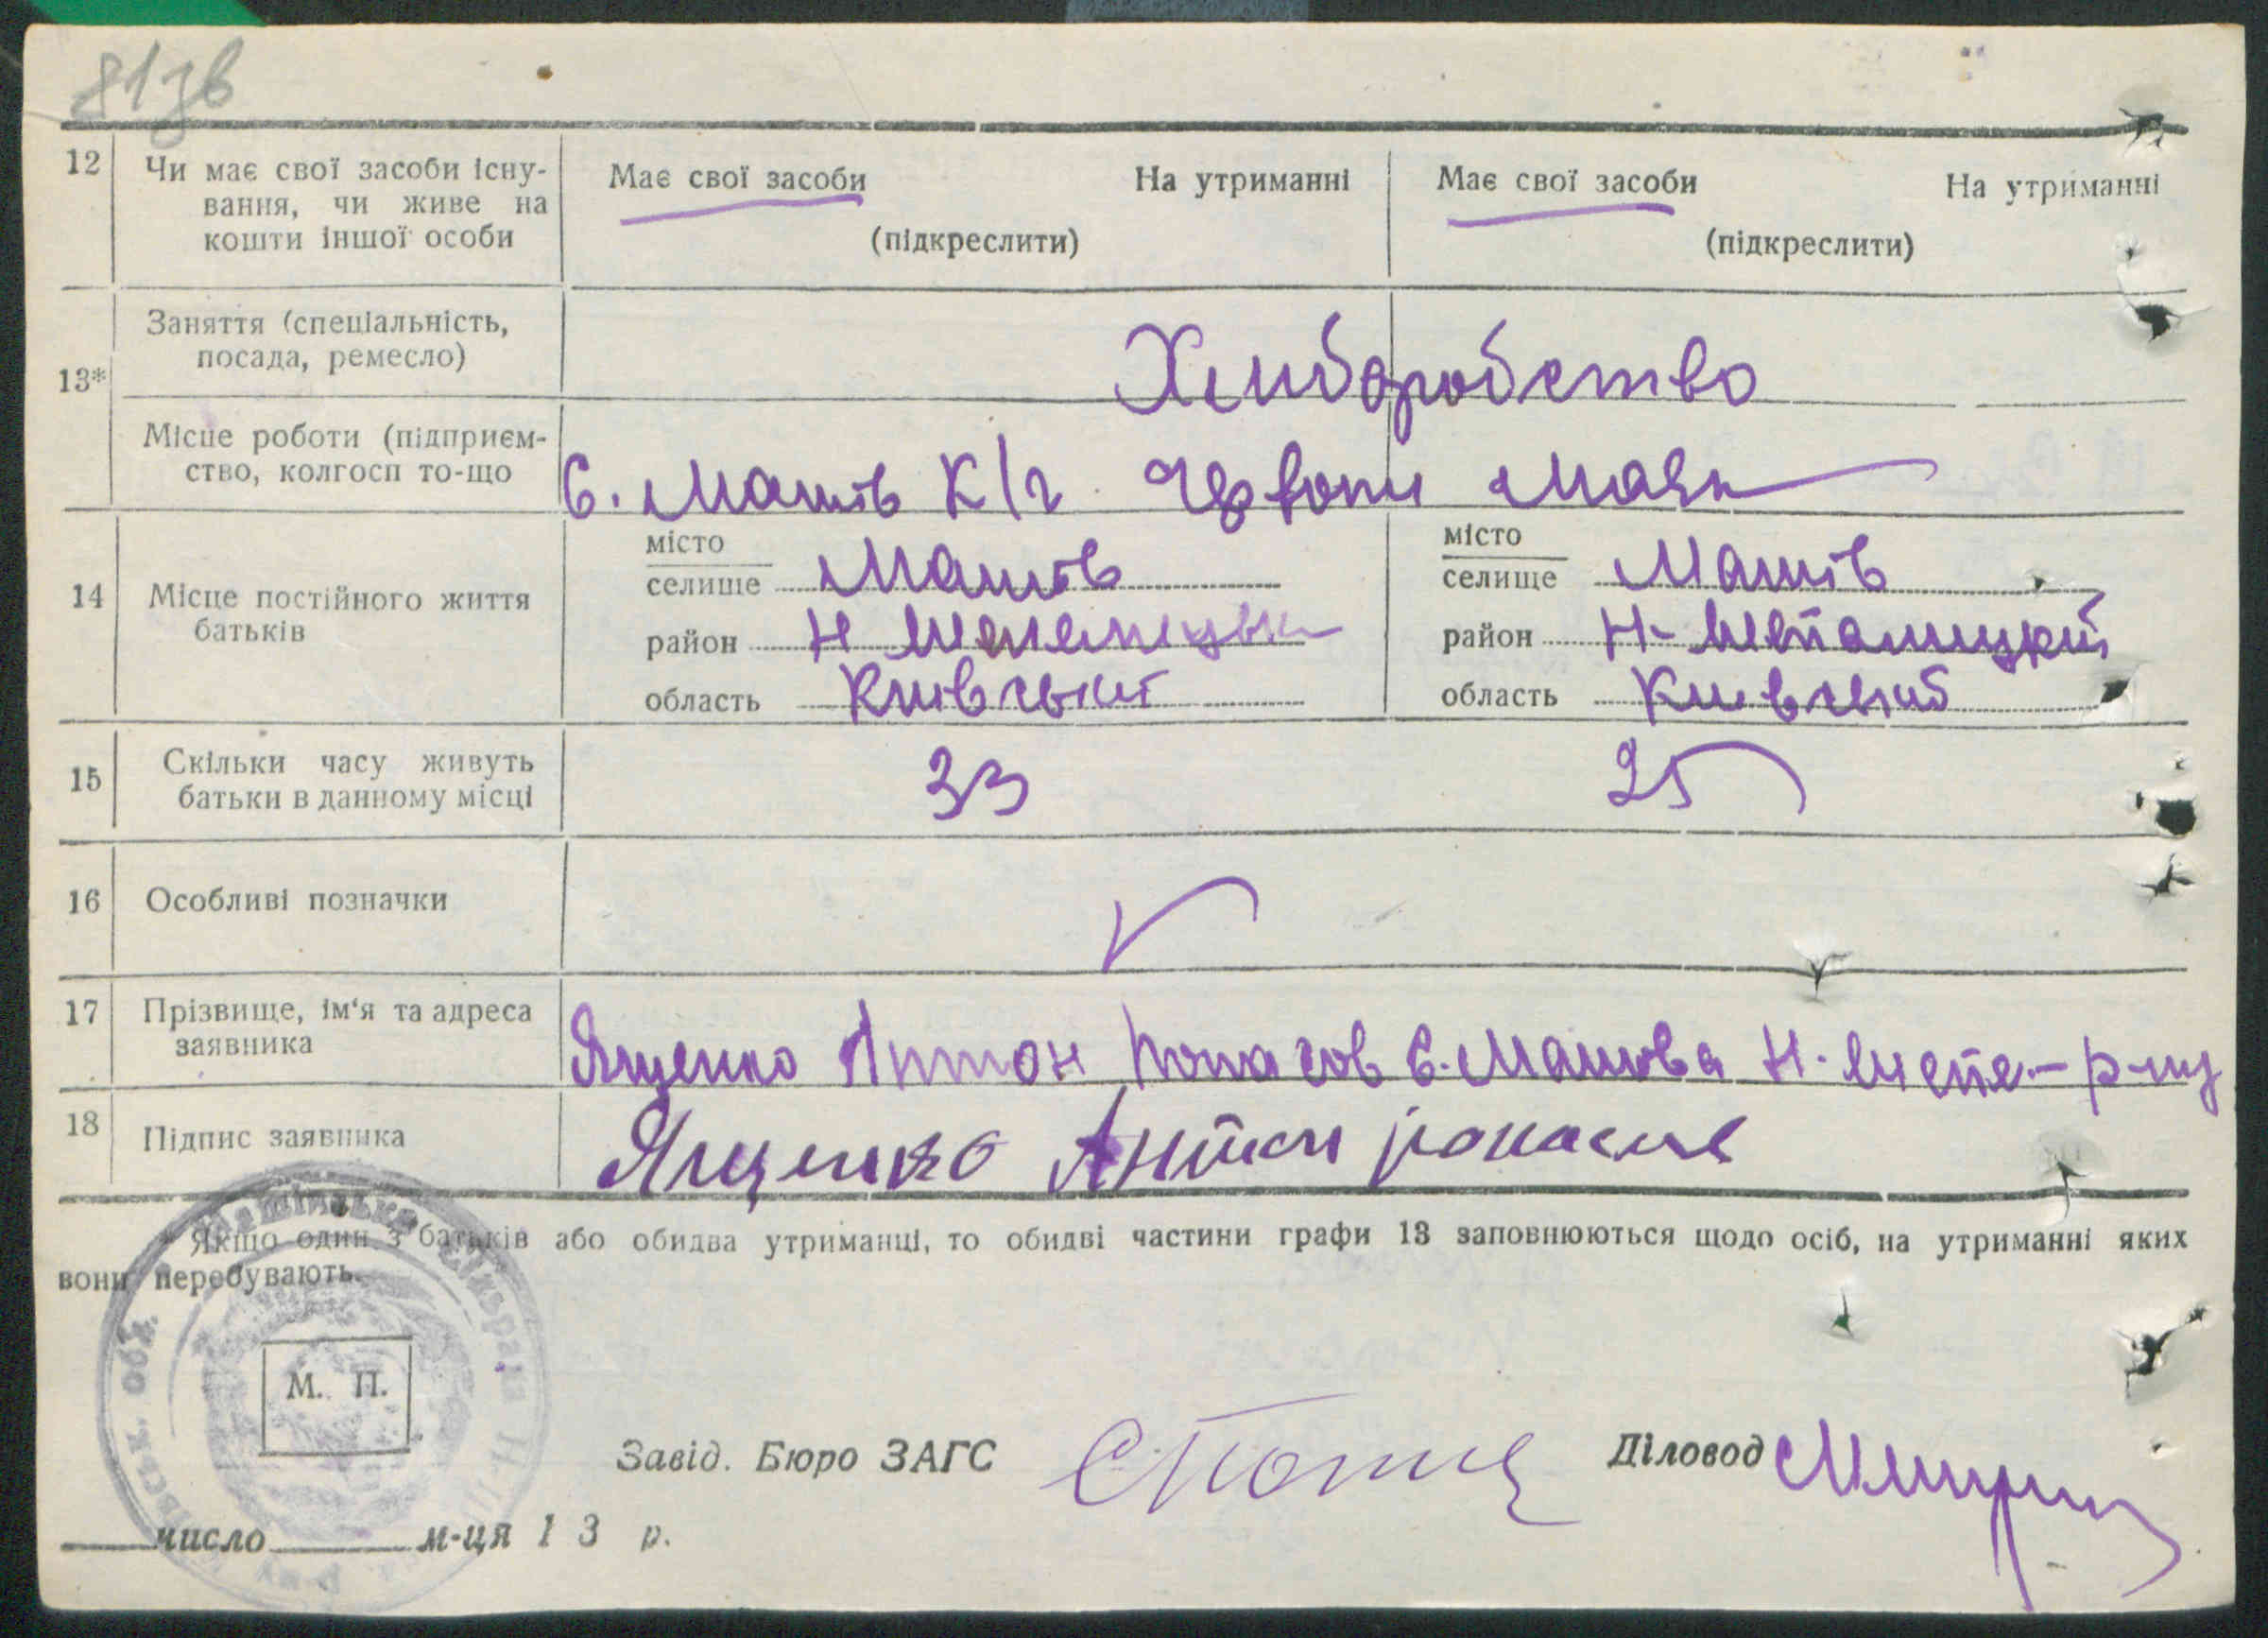 81зв
12 Чи має свої засоби існу-
вання, чи живе на
кошти іншої особи
Має свої засоби На утриманні
(підкреслити)
Має свої засоби На утриманні
(підкреслити)
13* Заняття (спеціальність,
посада, ремесло)
Хлиборобство
Місце роботи (підприєм-
ство, колгосп то-що
С. Машів К/г Червони Маяк
14 Місце постійного життя
батьків
місто
селище Машів
район
область Київський
місто
селище Машів
район Н-Шепелицкий
область Київський
15 Скільки часу живуть
батьки в данному місці
33 25
16 Особливі позначки
17 Прізвище, ім'я та адреса
заявника
Ященко Антон Копасов С. Машова Н. Шепе.- р-ну
18 Підпис заявника
Ященко Антон
* Якщо один з батьків або обидва утриманці, то обидві частини графи 13 заповнюються щодо осіб, на утриманні яких
вони перебувають.
Машівська сільрада
М. П.
Завід. Бюро ЗАГС
Діловод
число м-ця 1 3 р.